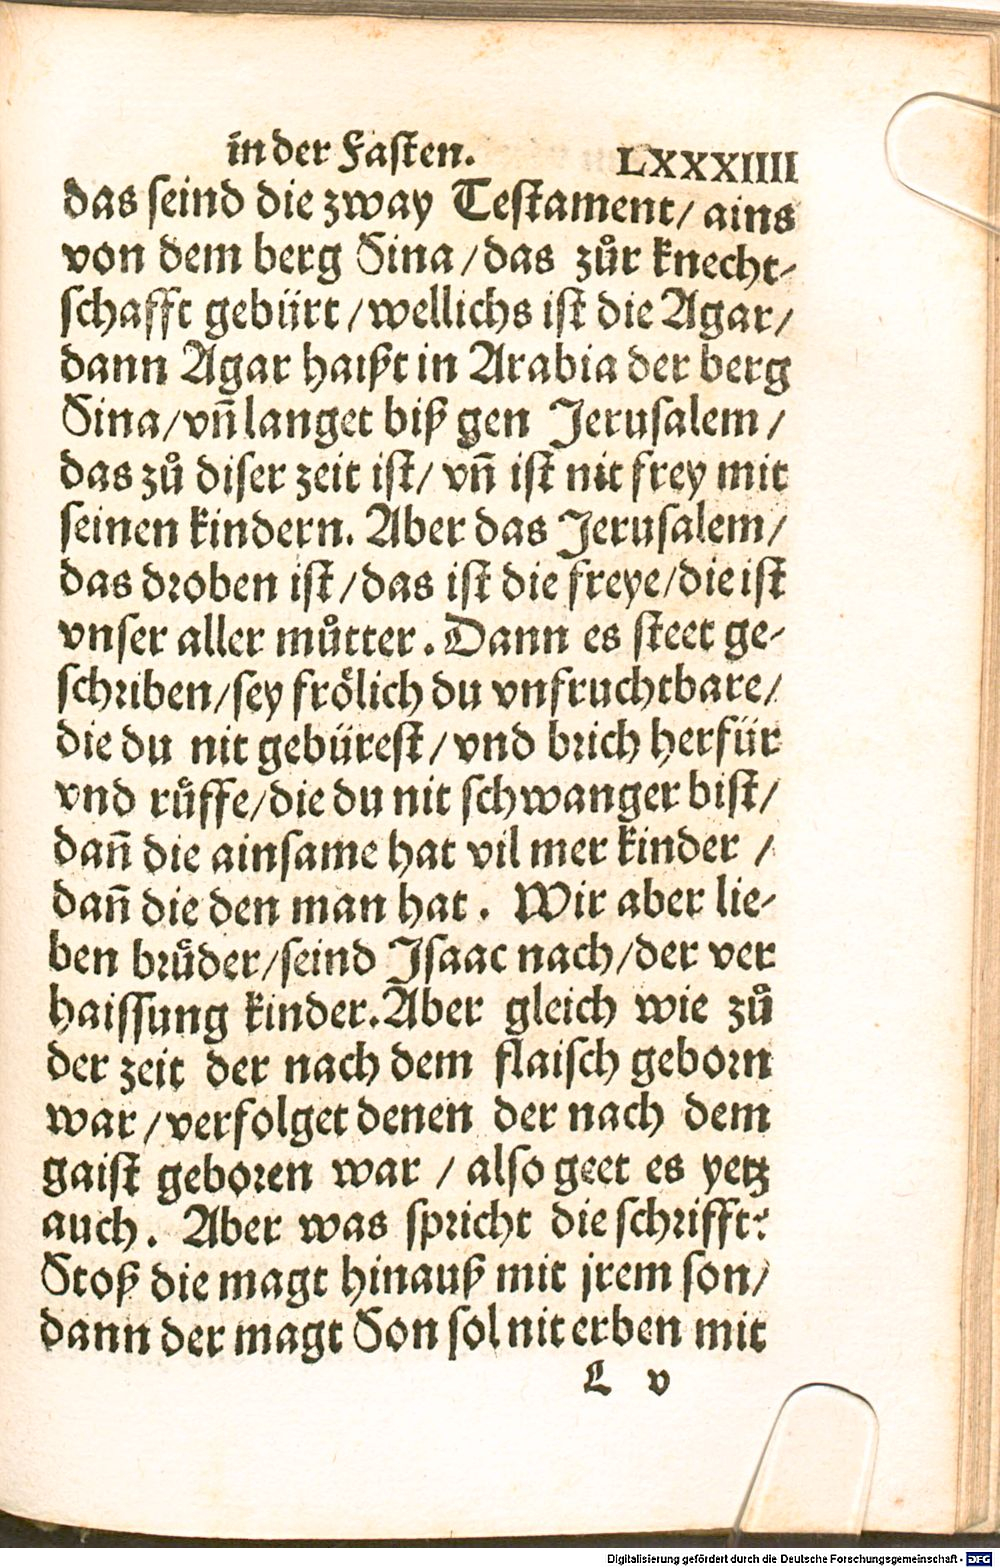 in der Faſten. LXXXIIII
das ſeind die zway Teſtament/ ains
von dem berg Sina/das zůr knecht-
ſchafft gebürt/wellichs iſt die Agar/
dann Agar haißt in Arabia der berg
Sina/vñ langet biß gen Jeruſalem/
das zů diſer zeit iſt/ vñ iſt nit frey mit
ſeinen kindern. Aber das Jeruſalem/
das droben iſt/das iſt die freye/die iſt
vnſer aller můtter. Dann es ſteet ge-
ſchriben/ſey frölich du vnfruchtbare/
die du nit gebüreſt/vnd brich herfür
vnd rüffe/die du nit ſchwanger biſt/
dañ die ainſame hat vil mer kinder /
dañ die den man hat. Wir aber lie-
ben brüder/ſeind Iſaac nach/der ver
haiſſung kinder. Aber gleich wie zů
der zeit der nach dem flaiſch geborn
war/verfolget denen der nach dem
gaiſt geboren war / alſo geet es yetz
auch. Aber was ſpricht die ſchrifft?
Stoß die magt hinauß mit jrem ſon/
dann der magt Son ſol nit erben mit
L v
Digitalisierung gefördert durch die Deutsche Forschungsgemeinschaft - DFG